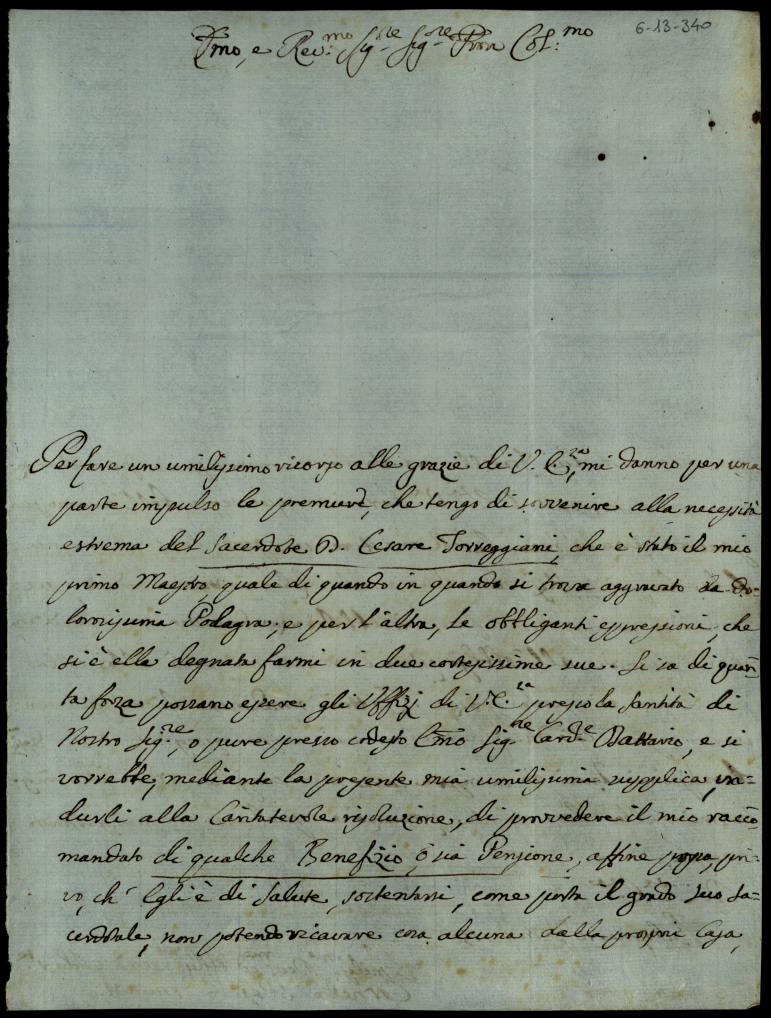 6-13-340
Emo, e Rev:mo Sig.re Sig.re Pron Col:mo
Per fare un umilissimo ricorso alle grazie di V. E.za, mi danno per una
parte impulso le premure, che tengo di sovvenire alla necessità
estrema del Sacerdote D. Cesare Torreggiani, che è stato il mio
primo Maestro, quale di quando in quando si trova aggravato da do-
lorosissima Podagra; e per l'altra, le obbliganti espressioni, che
si è ella degnata farmi in due cortesissime sue. Si sa di quan-
ta forza possano essere gli Uffizj di V. E.za presso la Santità di
Nostro Sig.re, o pure presso codesto Emo Sig.re Card.e Dattario, e si
vorrebbe, mediante la presente mia umilissima supplica, in-
durli alla Caritatevole risoluzione, di provvedere il mio racco-
mandato di qualche Benefizio, ò sia Pensione, affine possa, pri-
vo, ch' Egli è di salute, sostentarsi, come porta il grado suo sa-
cerdotale, non potendo ricavare cosa alcuna dalla propri Casa,